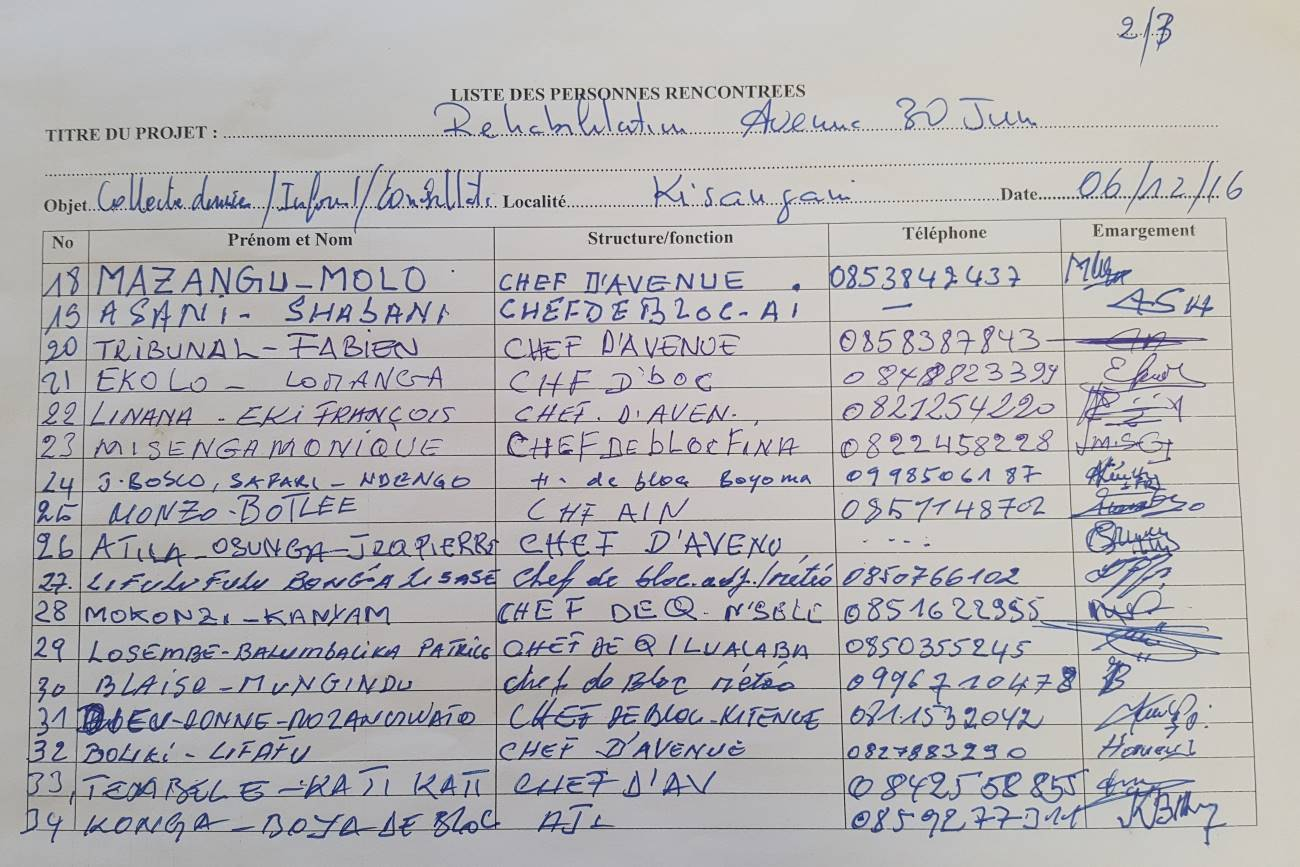 2/3
LISTE DES PERSONNES RENCONTREES
TITRE DU PROJET : Rehabilitation Avenue 30 Juin
Objet Collecte donnée / Inform/Consultat. Localité Kisangani Date 06/12/16
No Prénom et Nom Structure/fonction Téléphone Emargement
18 MAZANGU-MOLO CHEF D'AVENUE . 0853842437
19 ASANI - SHABANI CHEF DE BLOC-AI — ASH
20 TRIBUNAL-FABIEN CHEF D'AVENUE 0858387843
21 EKOLO - LOMANGA CHF D'bOC 0848823394
22 LINANA - EKI FRANÇOIS CHEF. D'AVEN. 0821254220
23 MISENGA MONIQUE CHEF DE bLOC FINA 0822458228
24 J. BOSCO, SAFARI - NDENGO de bloc Boyoma 0998506187
25 MONZO-BOTLEE CHF AIN 0857148702
26 ATILA-OSUNGA- CHEF D'AVENU
27. LIFULU FULU BONGA LISASE Chef de bloc.adj./météo 0850766102
28 MOKONZI-KANYAM CHEF DE Q. 0851622955
29 LOSEMBE-BALUMBALIKA PATRICE CHEF DE Q / LUALABA 0850355245
30 BLAISE-MUNGINDU chef de Bloc météo 0996710478
31 CHEF DE BLOC-KITENGE 0811532042
32 BOLIKI - LIFAFU CHEF D'AVENUE 0827883290
33, TEMABELE-KATI KATI CHEF D'AV 0842558855
34 KONGA-BOYA DE BLOC 0859277311